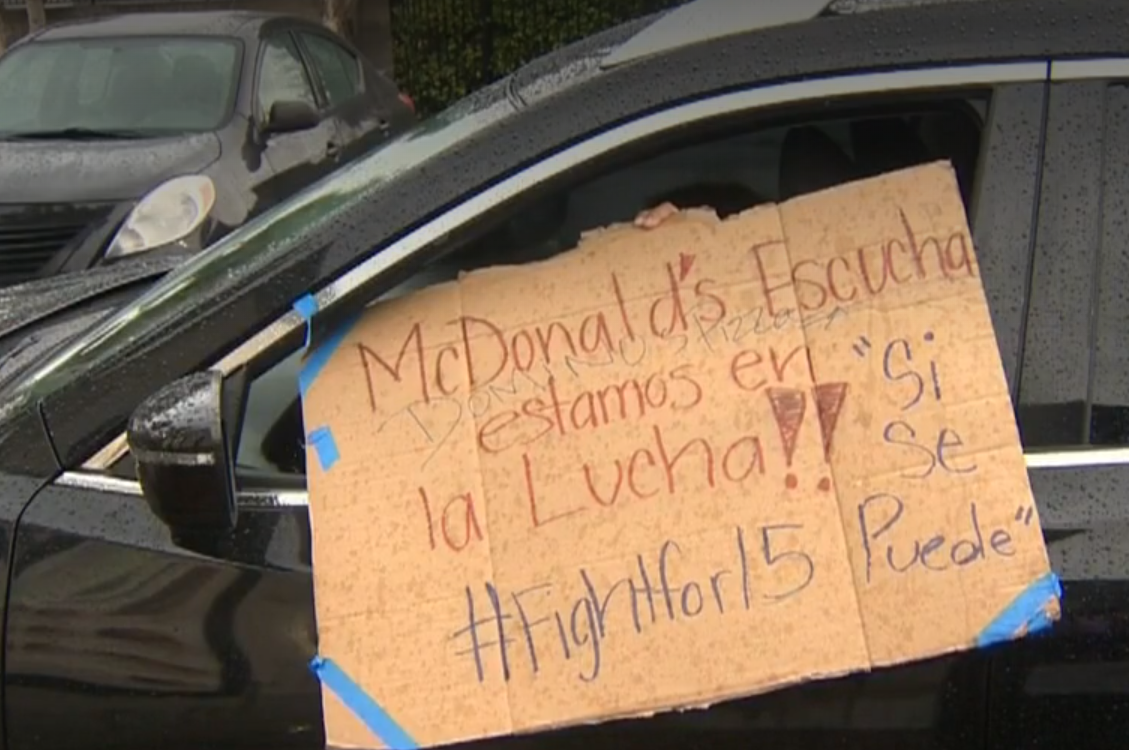 McDonald's Escucha
DOMINO'S Pizza
estamos en
la Lucha!!
"Si
Se
Puede"
#Fightfor15